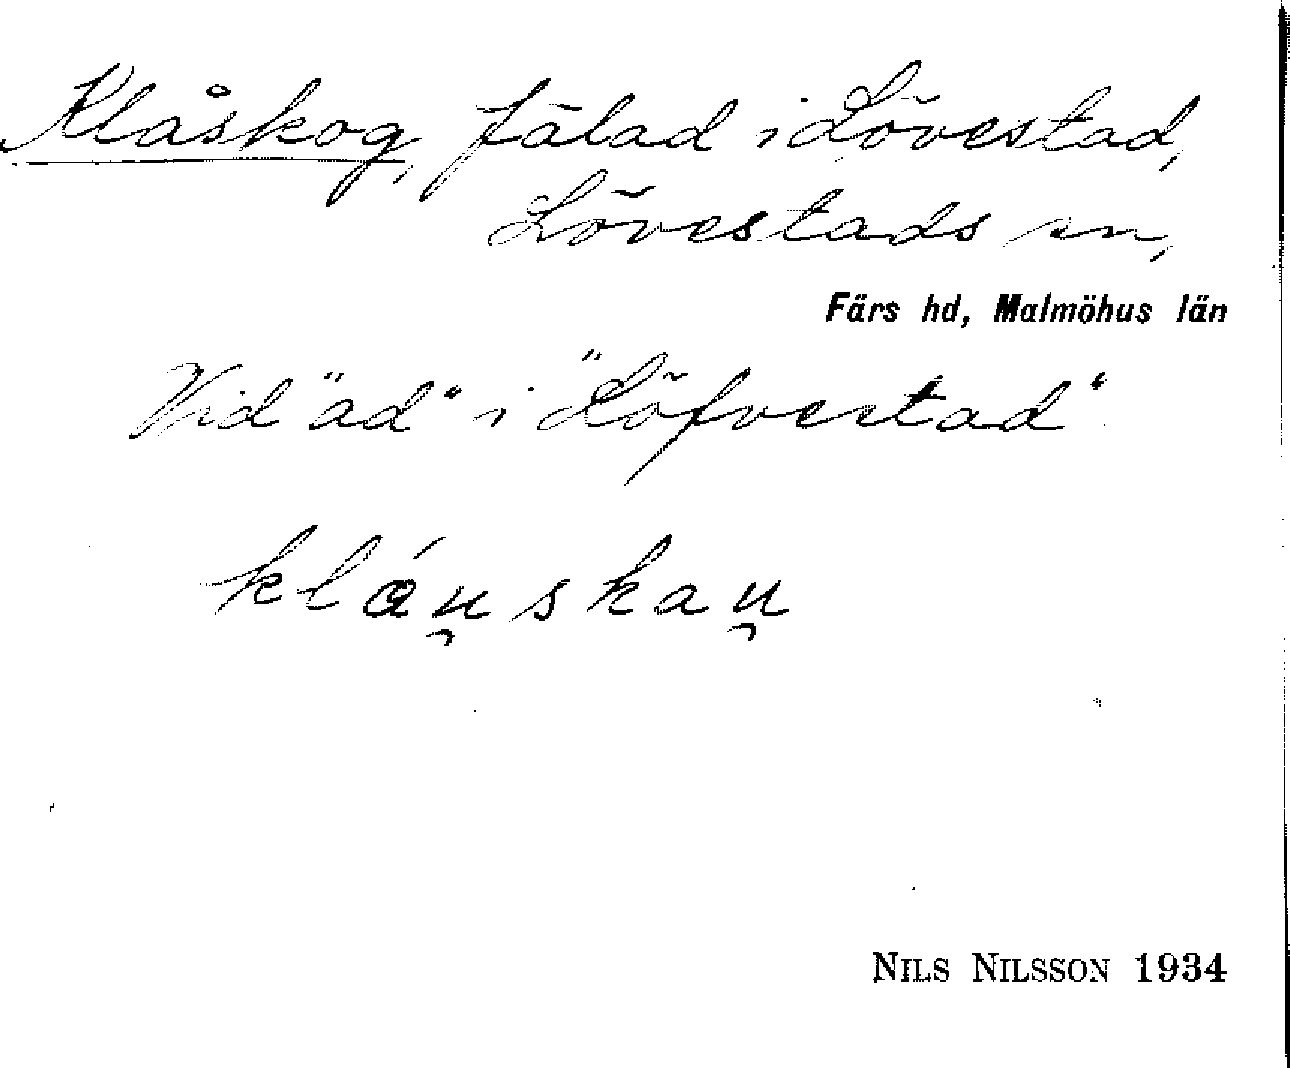 Klåskog, fälad i Lövestad,
Lövestads sn,
Färs hd, Malmöhus län
Vid "ad" i "Löfvestad"
klάu̯skau̯
NILS NILSSON 1934